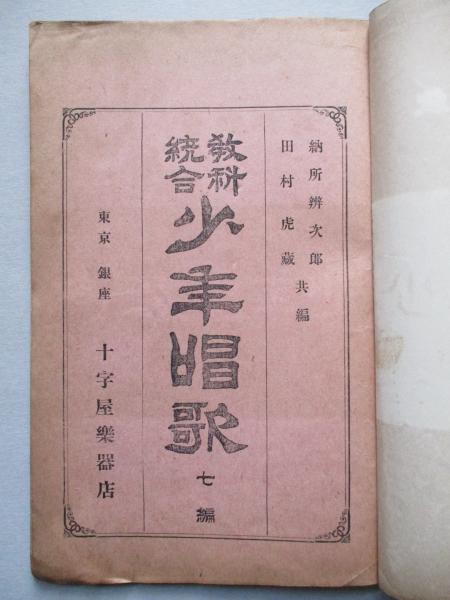 納所辨次郎
田村虎藏
共編
教科
統合
少年唱歌
七編
東京 銀座 十字屋樂器店